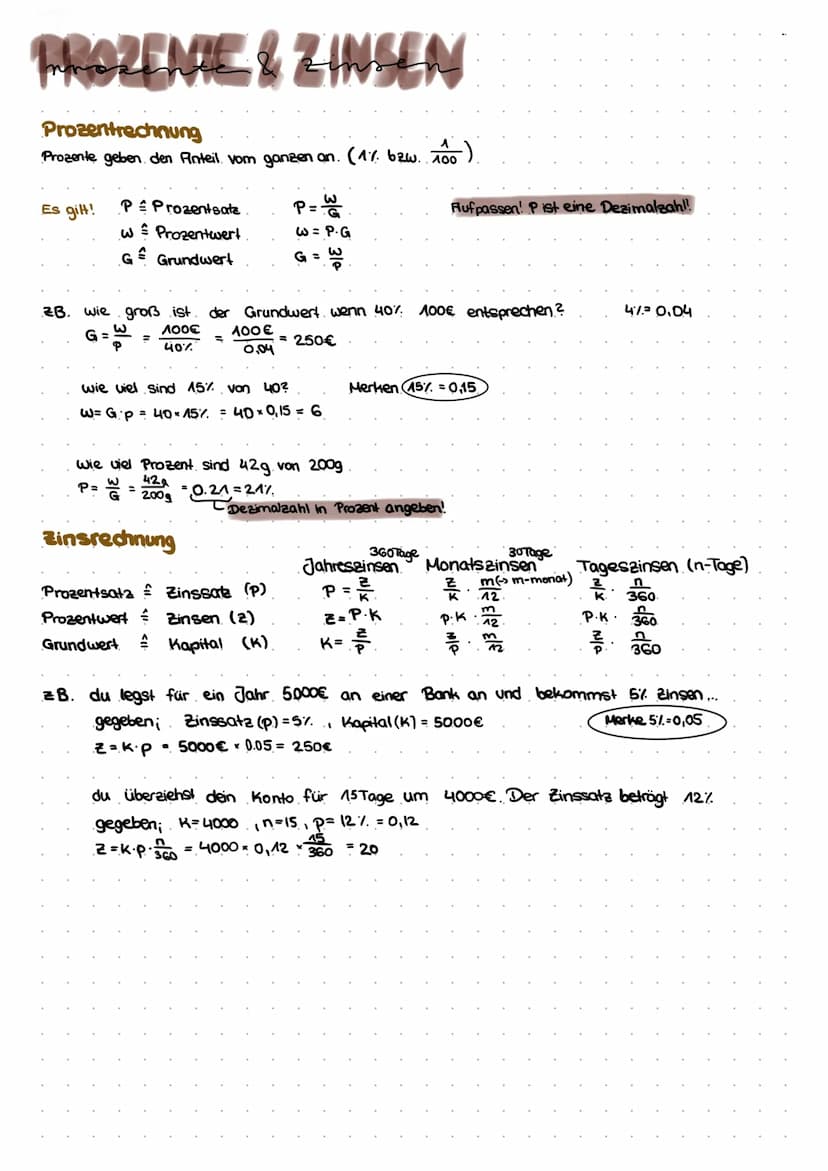 PROZENTE & ZINSEN
prozente & zinsen
Prozentrechnung
Prozente geben den Anteil vom ganzen an. (1% bzw. 1/100)
Es gilt! P ≙ Prozentsatz P = W/G Aufpassen! P ist eine Dezimalzahl!
W ≙ Prozentwert W = P·G
G ≙ Grundwert G = W/P
zB. wie groß ist der Grundwert wenn 40% 100€ entsprechen? 4% = 0,04
G = W/P = 100€/40% = 100€/0,04 = 250€
wie viel sind 15% von 40? Merken 15% = 0,15
W = G·p = 40 × 15% = 40 × 0,15 = 6
wie viel Prozent sind 42g von 200g
P = W/G = 42g/200g = 0.21 = 21%
Dezimalzahl in Prozent angeben!
Zinsrechnung
360Tage 30Tage
Jahreszinsen Monatszinsen Tageszinsen (n-Tage)
Prozentsatz ≙ Zinssatz (p) P = Z/K Z/K · m/12 (↔ m-monat) Z/K · n/360
Prozentwert ≙ Zinsen (z) Z = P·K P·K · m/12 P·K · n/360
Grundwert ≙ Kapital (K) K = Z/P Z/P · m/12 Z/P · n/360
zB. du legst für ein Jahr 5000€ an einer Bank an und bekommst 5% zinsen...
gegeben; Zinssatz (p) = 5%, Kapital (K) = 5000€ Merke 5% = 0,05
Z = K·p = 5000€ × 0.05 = 250€
du überziehst dein Konto für 15Tage um 4000€. Der Zinssatz beträgt 12%
gegeben; K=4000, n=15, p= 12% = 0,12
Z = K·p·n/360 = 4000 × 0,12 × 15/360 = 20